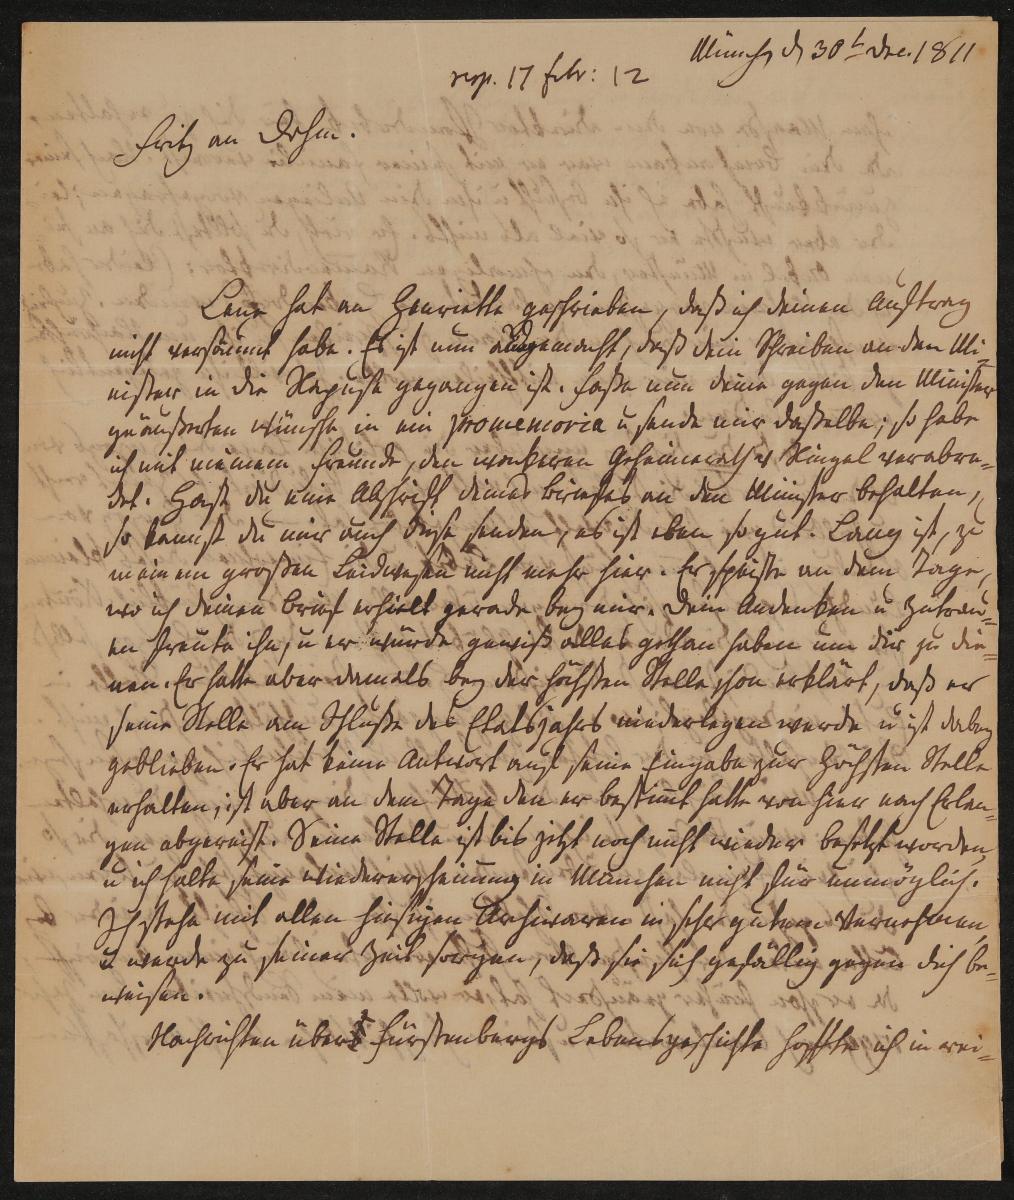 Münch d 30t Dec. 1811
resp. 17 febr: 12
Fritz an Dohm.
Lenz hat an Henriette geschrieben, daß ich deinen Auftrag
nicht versäumt habe. Es ist nun ausgemacht, daß dein Schreiben an den Mi-
nister in die Rapuse gegangen ist. Faße nun deine gegen den Minister
geäußerten Wünsche in ein promemoria u sende mir daßelbe; so habe
ich mit meinem Freunde, dem wackeren Geheimerath v Ringel verabre-
det. Hast du eine Abschrift deines Briefes an den Minister behalten,
so kannst du mir auch diese senden, es ist eben so gut. Lang ist, zu
meinem großen Leidwesen nicht mehr hier. Er speiste an dem Tage,
wo ich deinen Brief erhielt gerade bey mir. Dein Andenken u Zutrau-
en freute ihn, u er würde gewiß alles gethan haben um dir zu die-
nen. Er hatte aber damals bey der höchsten Stelle schon erklärt, daß er
seine Stelle am Schluße des Etatsjahrs niederlegen werde u ist dabey
geblieben. Er hat keine Antwort auf seine Eingabe zur Höchsten Stelle
erhalten, ist aber an dem Tage den er bestimt hatte von hier nach Erlan-
gen abgereist. Seine Stelle ist bis jetzt noch nicht wieder besetzt worden,
u ich halte seine Wiedererscheinung in München nicht für unmöglich.
Ich stehe mit allen hiesigen Archivaren in sehr gutem Vernehmen,
u werde zu seiner Zeit sorgen, daß sie sich gefällig gegen dich be-
weisen.
Nachrichten über Fürstenbergs Lebensgeschichte hoffte ich in rei-